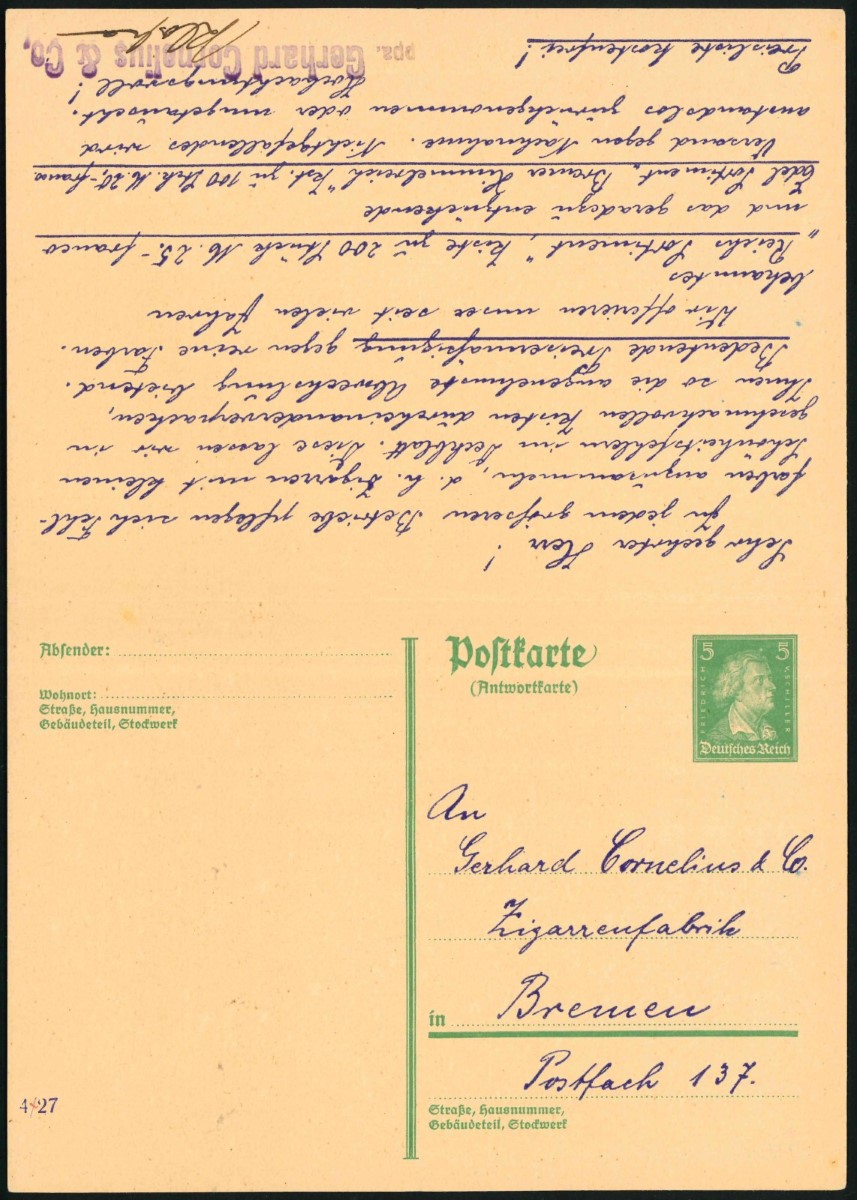 Sehr geehrter Herr!
In jedem grösseren Betriebe pflegen sich Fehl-
farben anzusammeln, d. h. Zigarren mit kleinen
Schönheitsfehlern im Deckblatt. Diese lassen wir in
geschmackvollen Kisten durcheinanderverpacken,
Ihnen so die angenehmste Abwechslung bietend.
Bedeutende Preisermäßigung gegen reine Farben.
Wir offerieren unser seit vielen Jahren
bekanntes
"Reichs Sortiment", Kiste zu 200 Stück M. 25.- franco
und das geradezu entzückende
Edel Sortiment "Bremer Himmelreich" Kst. zu 100 Stck. M. 20,- franco
Versand gegen Nachnahme. Nichtgefallendes wird
anstandslos zurückgenommen oder umgetauscht.
Hochachtungsvoll!
ppa. Gerhard Cornelius & Co.
Preisliste kostenfrei!
Absender:
Wohnort:
Straße, Hausnummer,
Gebäudeteil, Stockwerk
Postkarte
(Antwortkarte)
5 5
FRIEDRICH V. SCHILLER
Deutsches Reich
An
Gerhard Cornelius & Co.
Zigarrenfabrik
in Bremen
Postfach 137.
Straße, Hausnummer,
Gebäudeteil, Stockwerk
4 27